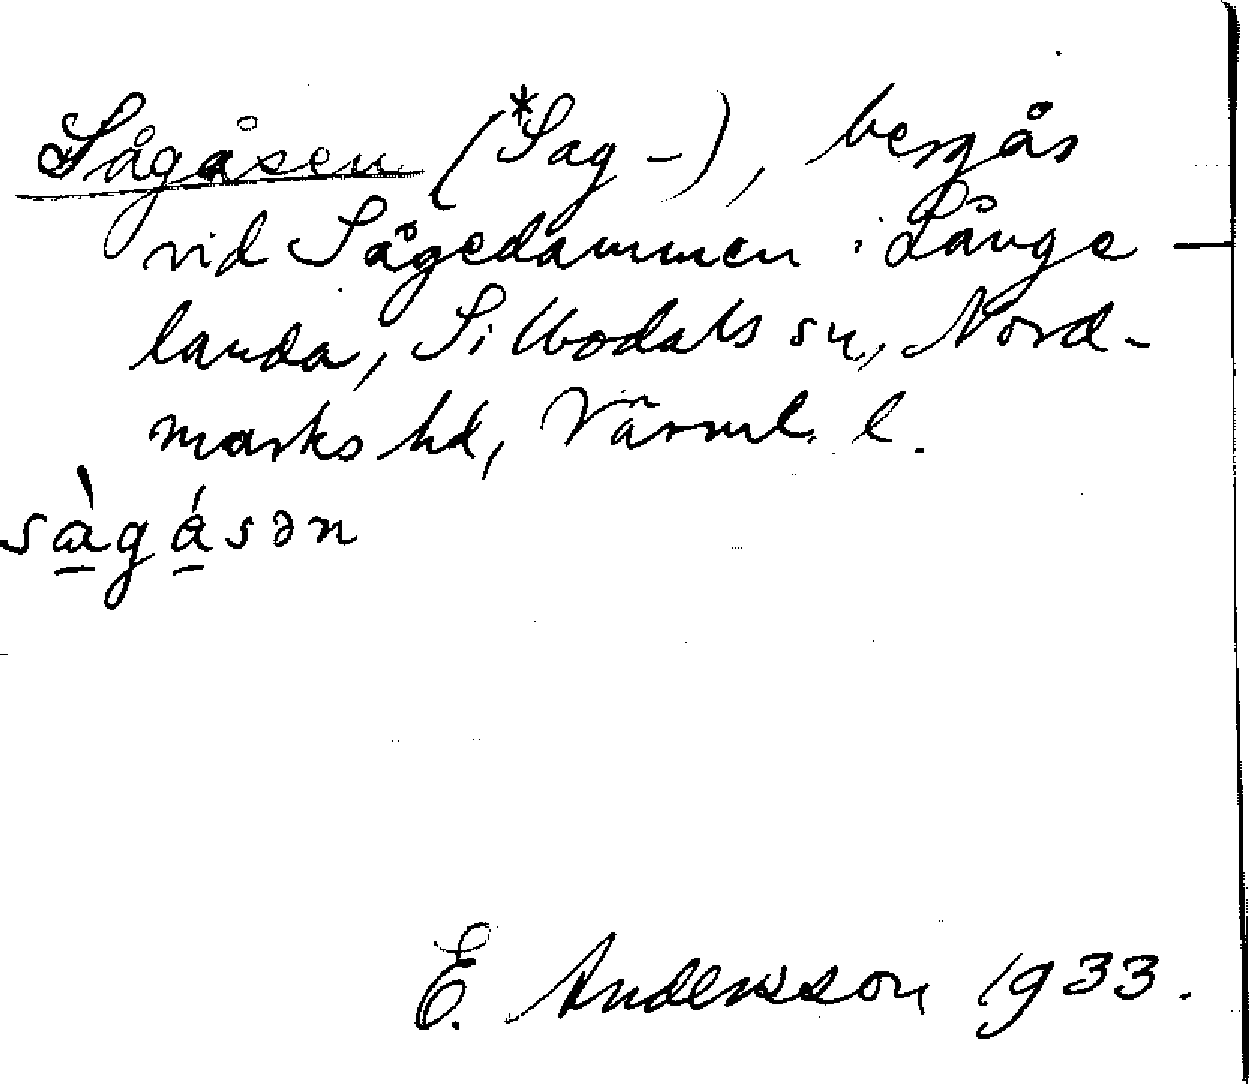 Sågåsen (*Sag-), bergås
vid Sågedammen i Långe-
landa, Silbodals sn, Nord-
marks hd, Värml. l.
sàgásən
E. Andersson 1933.